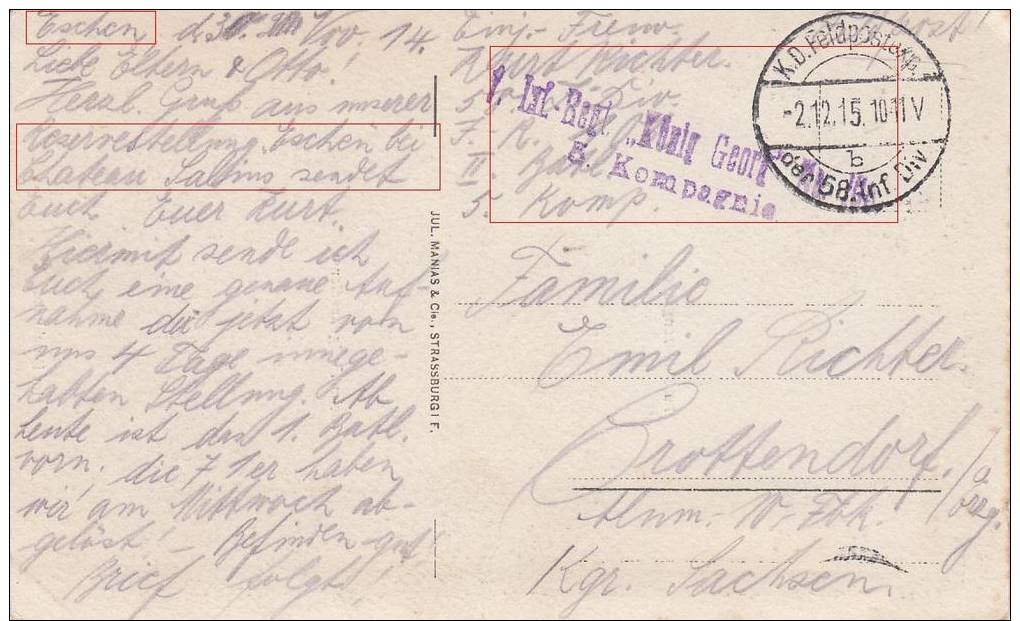 Eschen, d. 30. Nov. 14.
Liebe Eltern & Otto!
Herzl. Gruß aus unserer
Reservestellung Eschen bei
Château Salins sendet
Euch Euer Kurt.
Hiermit sende ich
Euch eine genaue Auf-
nahme die jetzt von
uns 4 Tage innege-
habten Stellung. Ab
heute ist das 1. Batl.
vorn, die 71er haben
wir am Mittwoch ab-
gelöst – Befinden gut!
Brief folgt!
JUL. MANIAS & Cie., STRASSBURG I E.
Einj.- Freiw.
Kurt Richter.
58. Inf. Div.
7. K.
II. Batl.
5. Komp.
Inf.-Regt. „König Georg"
5. Kompagnie
K.D. Feldpostexp.
-2.12.15. 10-11 V
b
der 58. Inf Div.
Familie
Emil Richter.
Crottendorf
Kgr. Sachsen